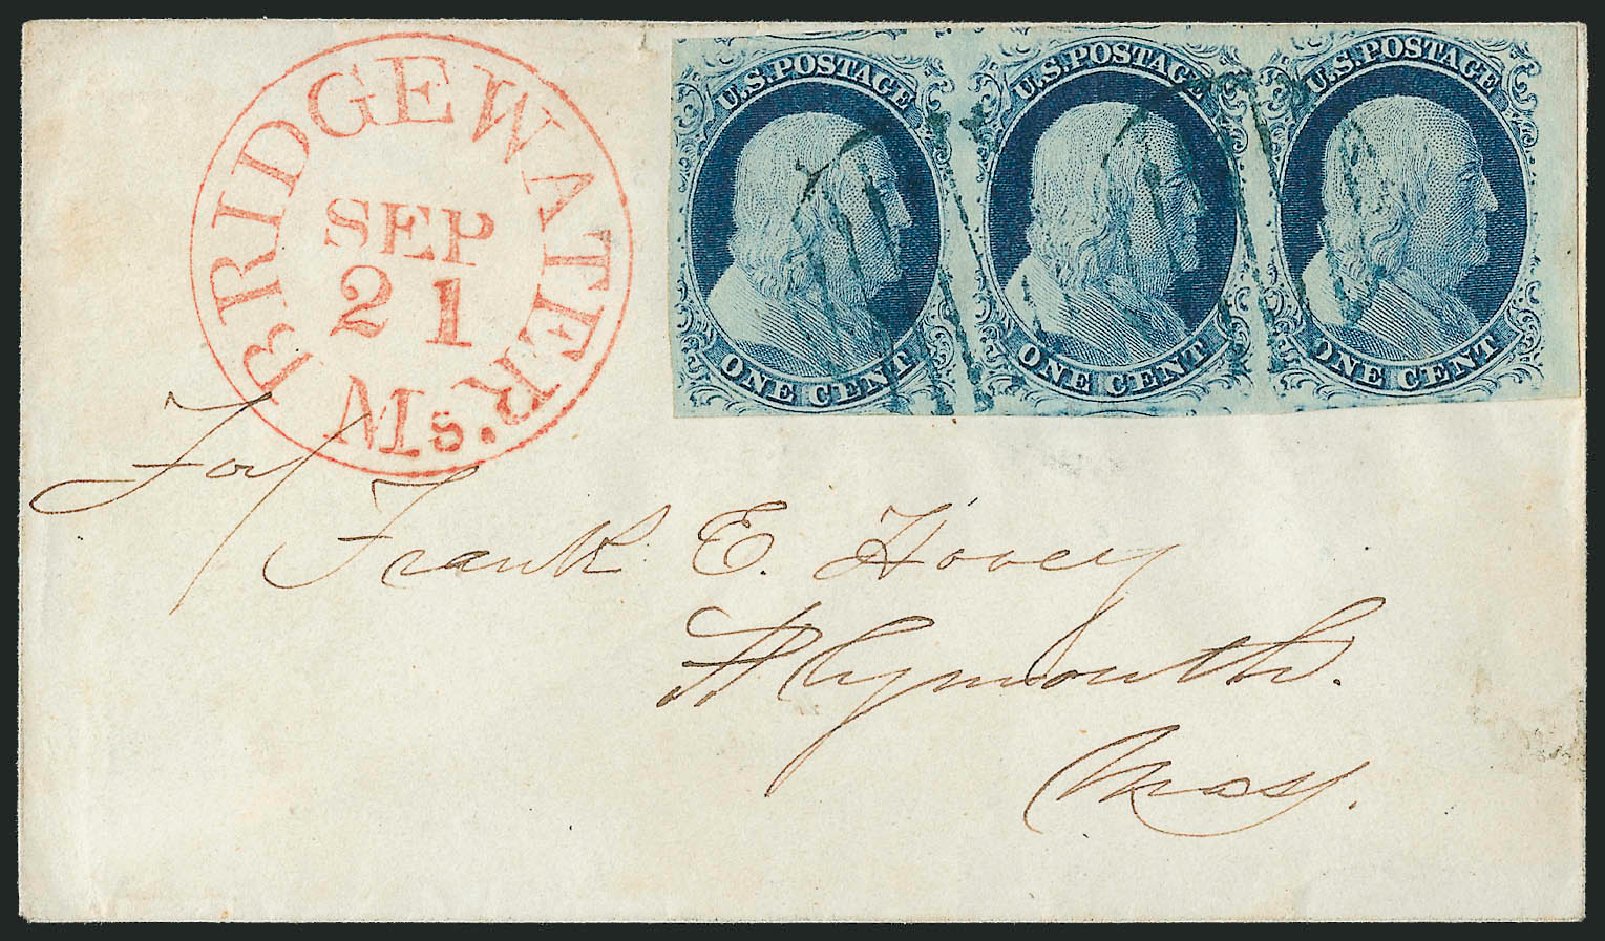 BRIDGEWATER
SEP
21
Ms.
U.S. POSTAGE
ONE CENT
U.S. POSTAGE
ONE CENT
U.S. POSTAGE
ONE CENT
For
Frank E. Hovey
Plymouth.
Mass.